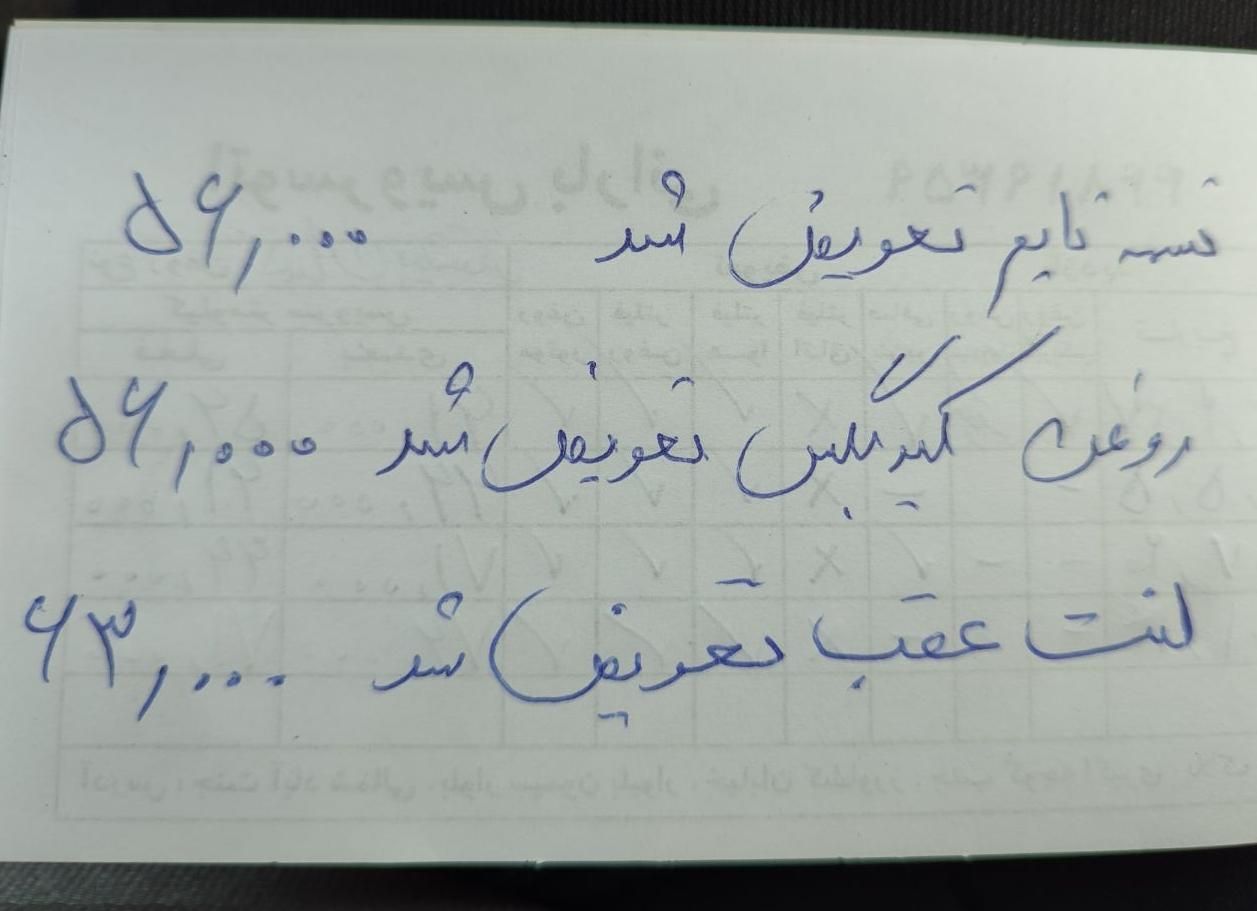 تسمه تایم تعویض شد ۵۶,۰۰۰
روغن گیربکس تعویض شد ۵۶,۰۰۰
لنت عقب تعویض شد ۶۳,۰۰۰